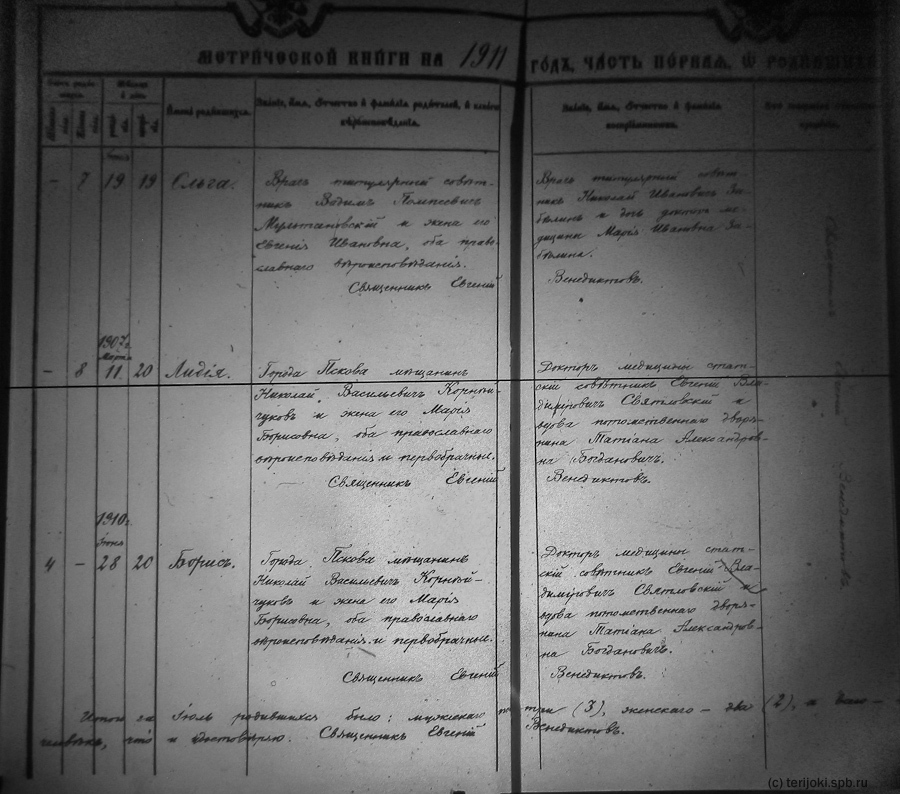 МЕТРИЧЕСКОЙ КНИГИ НА 1911 ГОДЪ, ЧАСТЬ ПЕРВАЯ, Ѡ РОДИВШИХСЯ
Имена родившихся.
Званіе, имя, отчество и фамилія родителей, и какого
вѣроисповѣданія.
Званіе, имя, отчество и фамилія
воспріемниковъ.
- 7 19 19 Ольга.
Врачъ титулярный совѣт-
никъ Вадимъ Помпеевичъ
и жена его
Евгенія Ивановна, оба право-
славнаго вѣроисповѣданія.
Священникъ Евгеній
Врачъ титулярный совѣт-
никъ Николай Ивановичъ За-
бѣлинъ и дочь доктора ме-
дицины Марія Ивановна За-
бѣлина.
Венедиктовъ.
1907г.
Марта
- 8 11 20 Лидія.
Города Пскова мѣщанинъ
Николай Васильевичъ Корней-
чуковъ и жена его Марія
Борисовна, оба православнаго
вѣроисповѣданія и первобрачные.
Священникъ Евгеній
Докторъ медицины стат-
скій совѣтникъ Евгеній Вла-
диміровичъ Святловскій и
вдова потомственнаго дворя-
нина Татіана Александров-
на Богдановичъ.
Венедиктовъ.
1910г.
Іюня
4 - 28 20 Борисъ.
Города Пскова мѣщанинъ
Николай Васильевичъ Корней-
чуковъ и жена его Марія
Борисовна, оба православнаго
вѣроисповѣданія и первобрачные.
Священникъ Евгеній
Докторъ медицины стат-
скій совѣтникъ Евгеній Вла-
диміровичъ Святловскій и
вдова потомственнаго дворя-
нина Татіана Александров-
на Богдановичъ.
Венедиктовъ.
Итого за Іюль родившихся было: мужскаго три (3), женскаго - два (2), а
что и удостовѣряю. Священникъ Евгеній Венедиктовъ.
Священникъ Евгеній Венедиктовъ
(c) terijoki.spb.ru